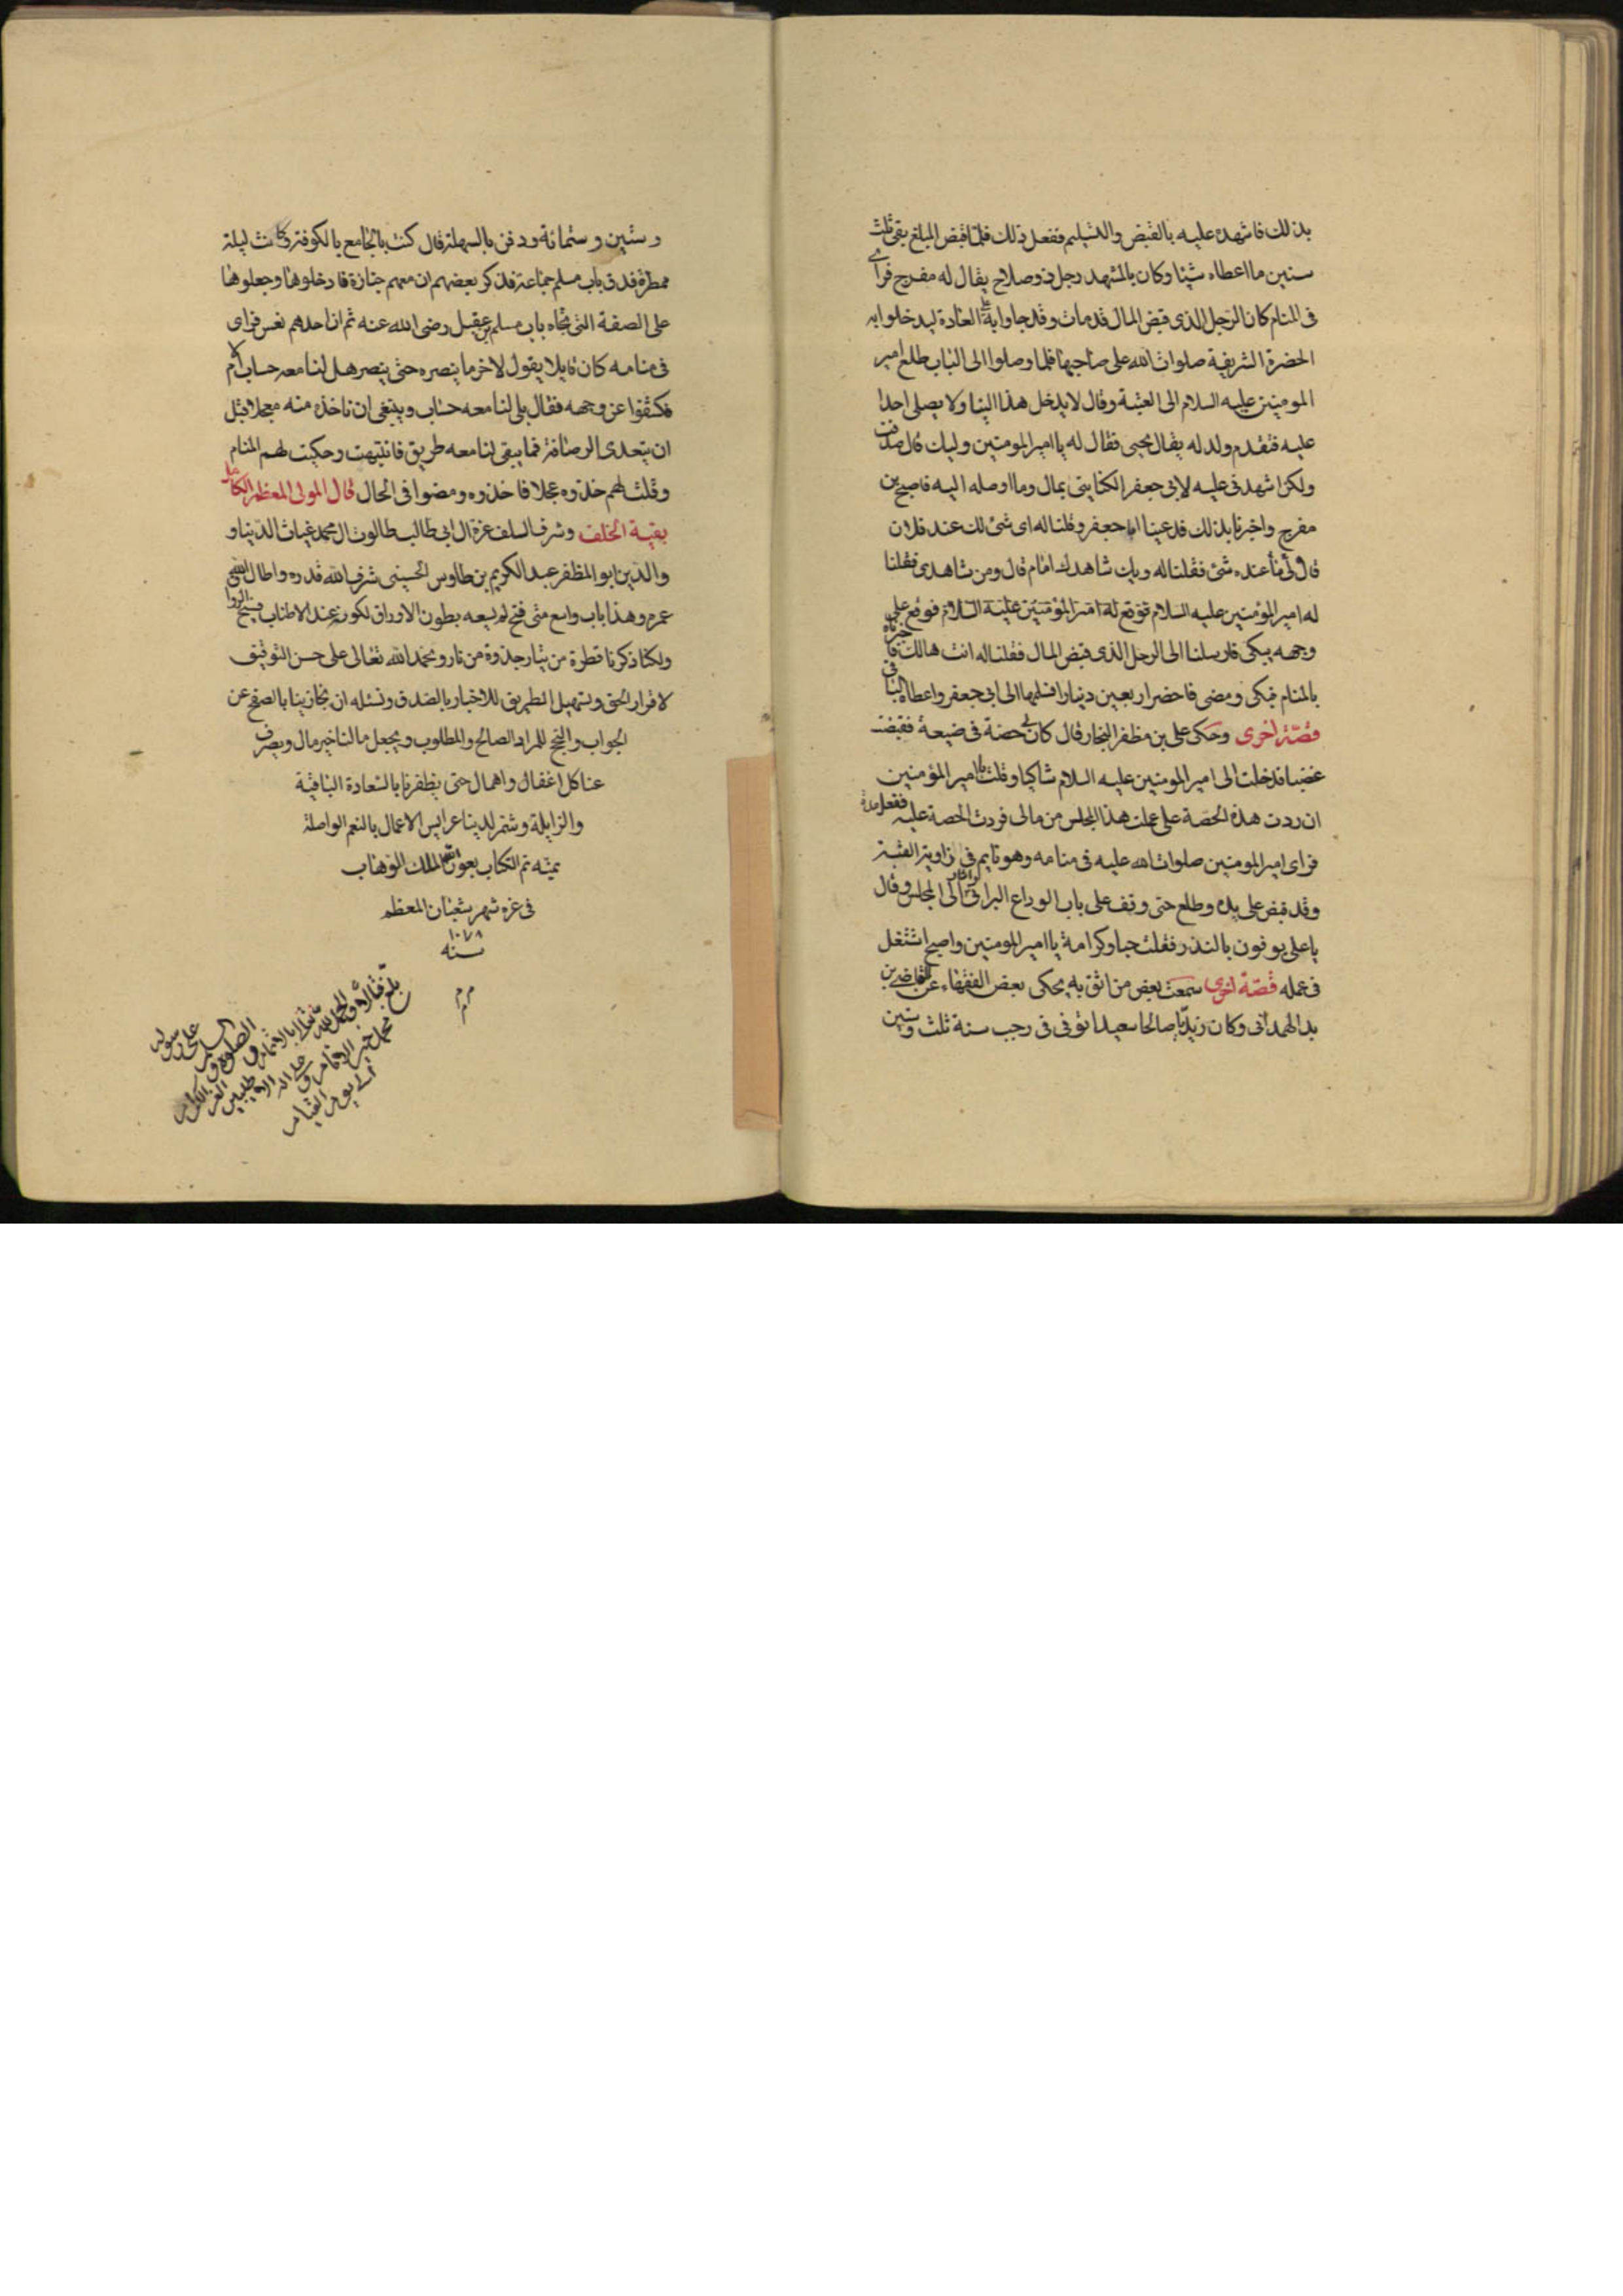 بذلك فاشهده عليه بالقبض والتسليم ففعل ذلك فلما قبض المبلغ بقى ثلث
سنين ما اعطاه شيئا وكان بالمشهد رجل ذو صلاح يقال له مفرج فراى
فى المنام كان الرجل الذى قبض المال قد مات وقد جاوا به على العادة ليدخلوا به
الحضرة الشريفة صلوات الله على صاحبها فلما وصلوا الى الباب طلع امير
المومنين عليه السلام الى العتبة وقال لا يدخل هذا الينا ولا يصلى احدا
عليه فتقدم ولد له يقال يحيى فقال له يا امير المومنين وليك قال صدقت
ولكن اشهدنى عليه لابى جعفر الكناينى بمال وما اوصله اليه فاصبح بن
مفرج واخبرنا بذلك فدعينا ابا جعفر وقلنا له اى شئ لك عند فلان
قال لى ما عنده شئ فقلنا له ويك شاهدك امام قال ومن شاهدى فقلنا
له امير المؤمنين عليه السلام فوقع له امير المؤمنين عليه السلام فوقع على
وجهه يبكى فارسلنا الى الرجل الذى قبض المال فقلنا له انت هالك فاخبرناه
بالمنام فبكى ومضى فاحضر اربعين دينارا فسلمها الى ابى جعفر واعطاه الباقى
قصة اخرى وحكى على بن مظفر النجار قال كان لى حصة فى ضيعة فقبضت
غصبا فدخلت الى امير المومنين عليه السلام شاكيا وقلت يا امير المؤمنين
ان ردت هذه الحصة على عملت هذا المجلس من مالى فردت الحصة عليه فغفل مدة
فراى امير المومنين صلوات الله عليه فى منامه وهو نايم فى زاوية القبة
وقد قبض على يده وطلع حتى وقف على باب الوداع البرانى واشار الى المجلس وقال
يا على يوفون بالنذر فقلت حبا وكرامة يا امير المومنين واصبح اشتغل
فى عمله قصة اخرى سمعت بعض من اثق به يحكى بعض الفقهاء عن القاضى بن
بد الهمدانى وكان زيديا صالحا سعيدا توفى فى رجب سنة ثلث وستين
وستين وستمائة ودفن بالسهلة قال كنت بالجامع بالكوفة وكانت ليلة
ممطرة فدق باب مسلم جماعة فذكر بعضهم ان معهم جنازة فادخلوها وجعلوها
على الصفة التى تجاه باب مسلم بن عقيل رضى الله عنه ثم ان احدهم نعس فراى
فى منامه كان قايلا يقول لاخر ما ينصره حتى ينصر هل لنا معه حساب ام لا
فكشفوا عن وجهه فقال بلى لنا معه حساب وينبغى ان ناخذه منه معجلا قبل
ان يتعدى الرصافة فما يبقى لنا معه طريق فانتبهت وحكيت لهم المنام
وقلت لهم خذوه عجلا فاخذوه ومضوا فى الحال قال المولى المعظم الكامل
بقية الخلف وشرف السلف عزة ال ابى طالب طالوت ال محمد غياث الدنيا و
والدين ابو المظفر عبد الكريم بن طاوس الحسينى شرف الله قدره واطال الله
عمره وهذا باب واسع متى فتح لم يسعه بطون الاوراق لكونه عند الاطناب
ولكنا ذكرنا قطرة من تيار جذوة من نار ونحمد الله تعالى على حسن التوفيق
لاقرار الحق وتسهيل الطريق للاخبار بالصدق ونسئله ان يجازينا بالصفح عن
الجواب والنجح للمراد الصالح والمطلوب ويجعل مالنا خير مال ويصرف
عنا كل اغفال واهمال حتى يظفرنا بالسعادة الباقية
والزايلة وشمر لدينا عرايس الاعمال بالنعم الواصلة
بمنه تم الكتاب بعون الله الملك الوهاب
فى غره شهر شعبان المعظم
١٠٧٨
سنه